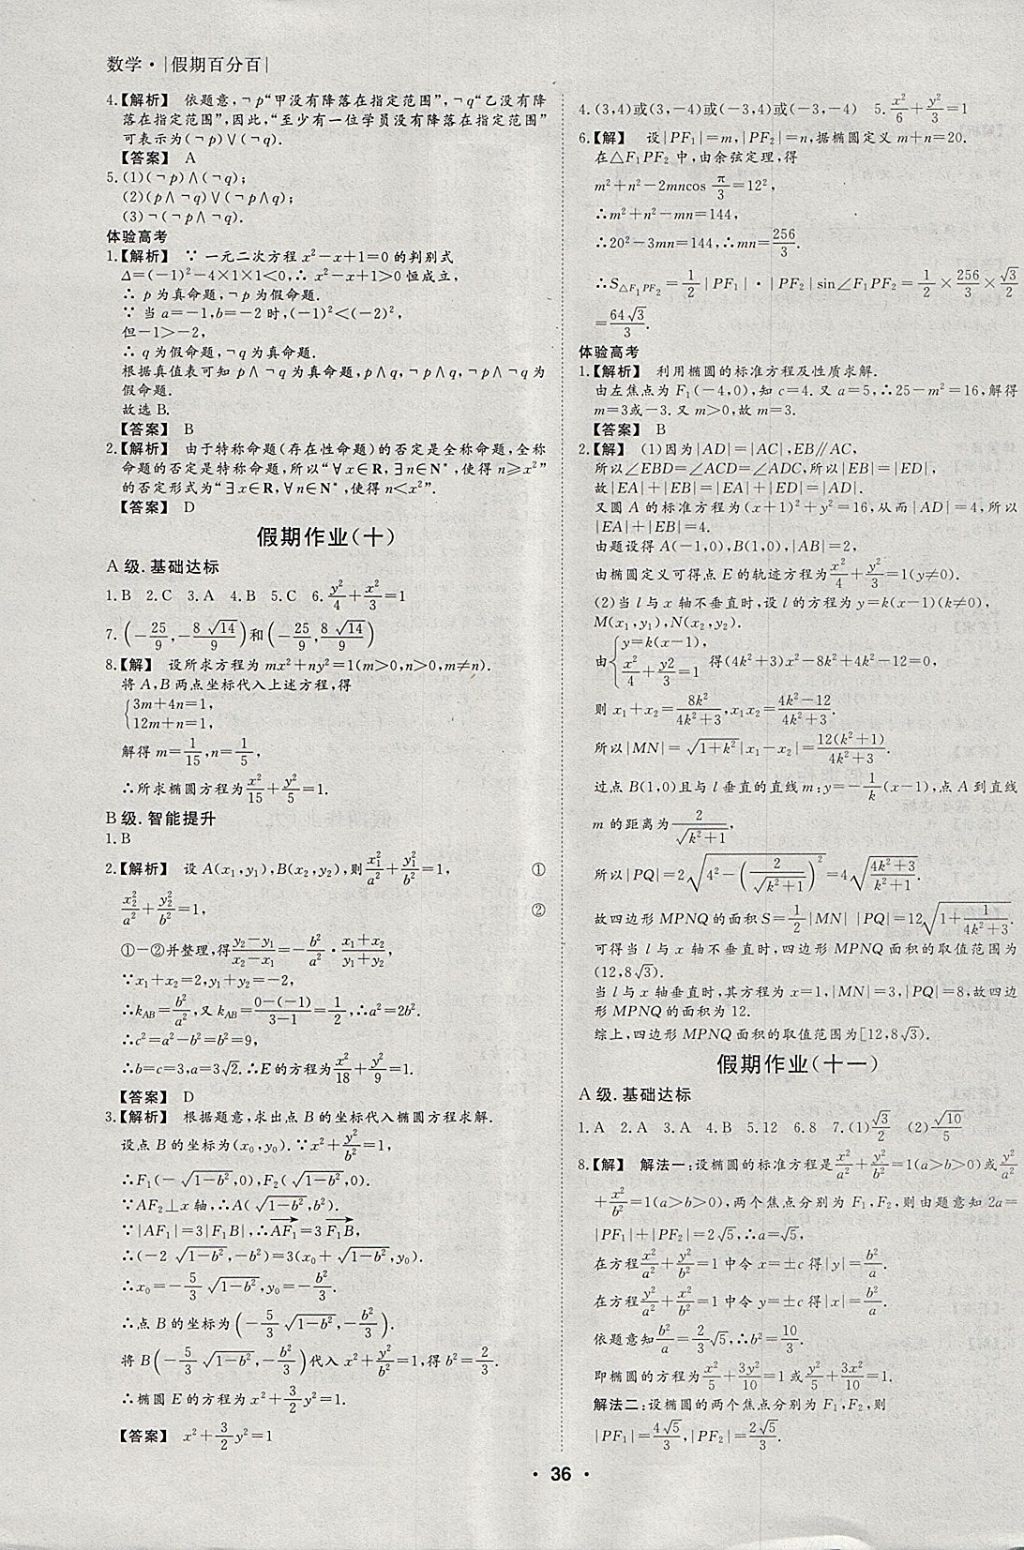 数学·|假期百分百|
4.【解析】 依题意,¬p“甲没有降落在指定范围”,¬q“乙没有降
落在指定范围”,因此,“至少有一位学员没有降落在指定范围”
可表示为(¬p)∨(¬q).
【答案】 A
5.(1)(¬p)∧(¬q);
(2)(p∧¬q)∨(¬p∧q);
(3)¬(¬p∧¬q).
体验高考
1.【解析】 ∵ 一元二次方程 x²−x+1=0的判别式
Δ=(−1)²−4×1×1<0,∴ x²−x+1>0恒成立,
∴ p为真命题,¬p为假命题.
∵ 当 a=−1,b=−2时,(−1)²<(−2)²,
但−1>−2,
∴ q为假命题,¬q为真命题.
根据真值表可知 p∧¬q为真命题,p∧q,¬p∧q,¬p∧¬q为
假命题.
故选 B.
【答案】 B
2.【解析】 由于特称命题(存在性命题)的否定是全称命题,全称
命题的否定是特称命题,所以“∀x∈R,∃n∈N*,使得 n≥x²”
的否定形式为“∃x∈R,∀n∈N*,使得 n<x²”.
【答案】 D
假期作业(十)
A 级.基础达标
1.B 2.C 3.A 4.B 5.C 6.y²/4+x²/3=1
7.(−25/9,−8√14/9)和(−25/9,8√14/9)
8.【解】 设所求方程为 mx²+ny²=1(m>0,n>0,m≠n).
将 A,B 两点坐标代入上述方程,得
{3m+4n=1,
12m+n=1,
解得 m=1/15,n=1/5,
∴所求椭圆方程为x²/15+y²/5=1.
B 级.智能提升
1.B
2.【解析】 设 A(x₁,y₁),B(x₂,y₂),则x₁²/a²+y₁²/b²=1, ①
x₂²/a²+y₂²/b²=1, ②
①−②并整理,得(y₂−y₁)/(x₂−x₁)=−b²/a²·(x₁+x₂)/(y₁+y₂),
∵x₁+x₂=2,y₁+y₂=−2,
∴k_AB=b²/a²,又 k_AB=(0−(−1))/(3−1)=1/2,∴a²=2b².
∴c²=a²−b²=b²=9,
∴b=c=3,a=3√2.∴E的方程为x²/18+y²/9=1.
【答案】 D
3.【解析】 根据题意,求出点 B 的坐标代入椭圆方程求解.
设点 B 的坐标为(x₀,y₀).∵x²+y²/b²=1,
∴F₁(−√(1−b²),0),F₂(√(1−b²),0).
∵AF₂⊥x 轴,∴A(√(1−b²),b²).
∵|AF₁|=3|F₁B|,∴AF₁→=3F₁B→,
∴(−2√(1−b²),−b²)=3(x₀+√(1−b²),y₀).
∴x₀=−5/3√(1−b²),y₀=−b²/3.
∴点 B 的坐标为(−5/3√(1−b²),−b²/3).
将 B(−5/3√(1−b²),−b²/3)代入 x²+y²/b²=1,得 b²=2/3.
∴椭圆 E 的方程为 x²+3/2y²=1.
【答案】 x²+3/2y²=1
4.(3,4)或(3,−4)或(−3,4)或(−3,−4) 5.x²/6+y²/3=1
6.【解】 设|PF₁|=m,|PF₂|=n,据椭圆定义 m+n=20.
在△F₁PF₂ 中,由余弦定理,得
m²+n²−2mncos π/3=12²,
∴m²+n²−mn=144,
∴20²−3mn=144,∴mn=256/3.
∴S△F₁PF₂=1/2|PF₁|·|PF₂|sin∠F₁PF₂=1/2×256/3×√3/2
=64√3/3.
体验高考
1.【解析】 利用椭圆的标准方程及性质求解.
由左焦点为 F₁(−4,0),知 c=4.又 a=5,∴25−m²=16,解得
m=3或−3.又 m>0,故 m=3.
【答案】 B
2.【解】 (1)因为|AD|=|AC|,EB∥AC,
所以∠EBD=∠ACD=∠ADC,所以|EB|=|ED|,
故|EA|+|EB|=|EA|+|ED|=|AD|.
又圆 A 的标准方程为(x+1)²+y²=16,从而|AD|=4,所以
|EA|+|EB|=4.
由题设得 A(−1,0),B(1,0),|AB|=2,
由椭圆定义可得点 E 的轨迹方程为x²/4+y²/3=1(y≠0).
(2)当 l 与 x 轴不垂直时,设 l 的方程为 y=k(x−1)(k≠0),
M(x₁,y₁),N(x₂,y₂).
由{y=k(x−1), x²/4+y2/3=1 得(4k²+3)x²−8k²+4k²−12=0,
则 x₁+x₂=8k²/(4k²+3),x₁x₂=(4k²−12)/(4k²+3).
所以|MN|=√(1+k²)|x₁−x₂|=12(k²+1)/(4k²+3).
过点 B(1,0)且与 l 垂直的直线 m:y=−1/k(x−1),点 A 到直线
m 的距离为2/√(k²+1),
所以|PQ|=2√(4²−(2/√(k²+1))²)=4√((4k²+3)/(k²+1)).
故四边形 MPNQ 的面积 S=1/2|MN||PQ|=12√(1+1/(4k²+3)).
可得当 l 与 x 轴不垂直时,四边形 MPNQ 面积的取值范围为
(12,8√3).
当 l 与 x 轴垂直时,其方程为 x=1,|MN|=3,|PQ|=8,故四边
形 MPNQ 的面积为 12.
综上,四边形 MPNQ 面积的取值范围为[12,8√3).
假期作业(十一)
A 级.基础达标
1.A 2.A 3.A 4.B 5.12 6.8 7.(1)√3/2 (2)√10/5
8.【解】 解法一:设椭圆的标准方程是x²/a²+y²/b²=1(a>b>0)或y²/a²
+x²/b²=1(a>b>0),两个焦点分别为 F₁,F₂,则由题意知 2a=
|PF₁|+|PF₂|=2√5,∴a=√5.
在方程x²/a²+y²/b²=1 中令 x=±c 得|y|=b²/a.
在方程y²/a²+x²/b²=1 中令 y=±c 得|x|=b²/a.
依题意知b²/a=2/3√5,∴b²=10/3.
即椭圆的方程为x²/5+3y²/10=1 或y²/5+3x²/10=1.
解法二:设椭圆的两个焦点分别为 F₁,F₂,则
|PF₁|=4√5/3,|PF₂|=2√5/3.
· 36 ·